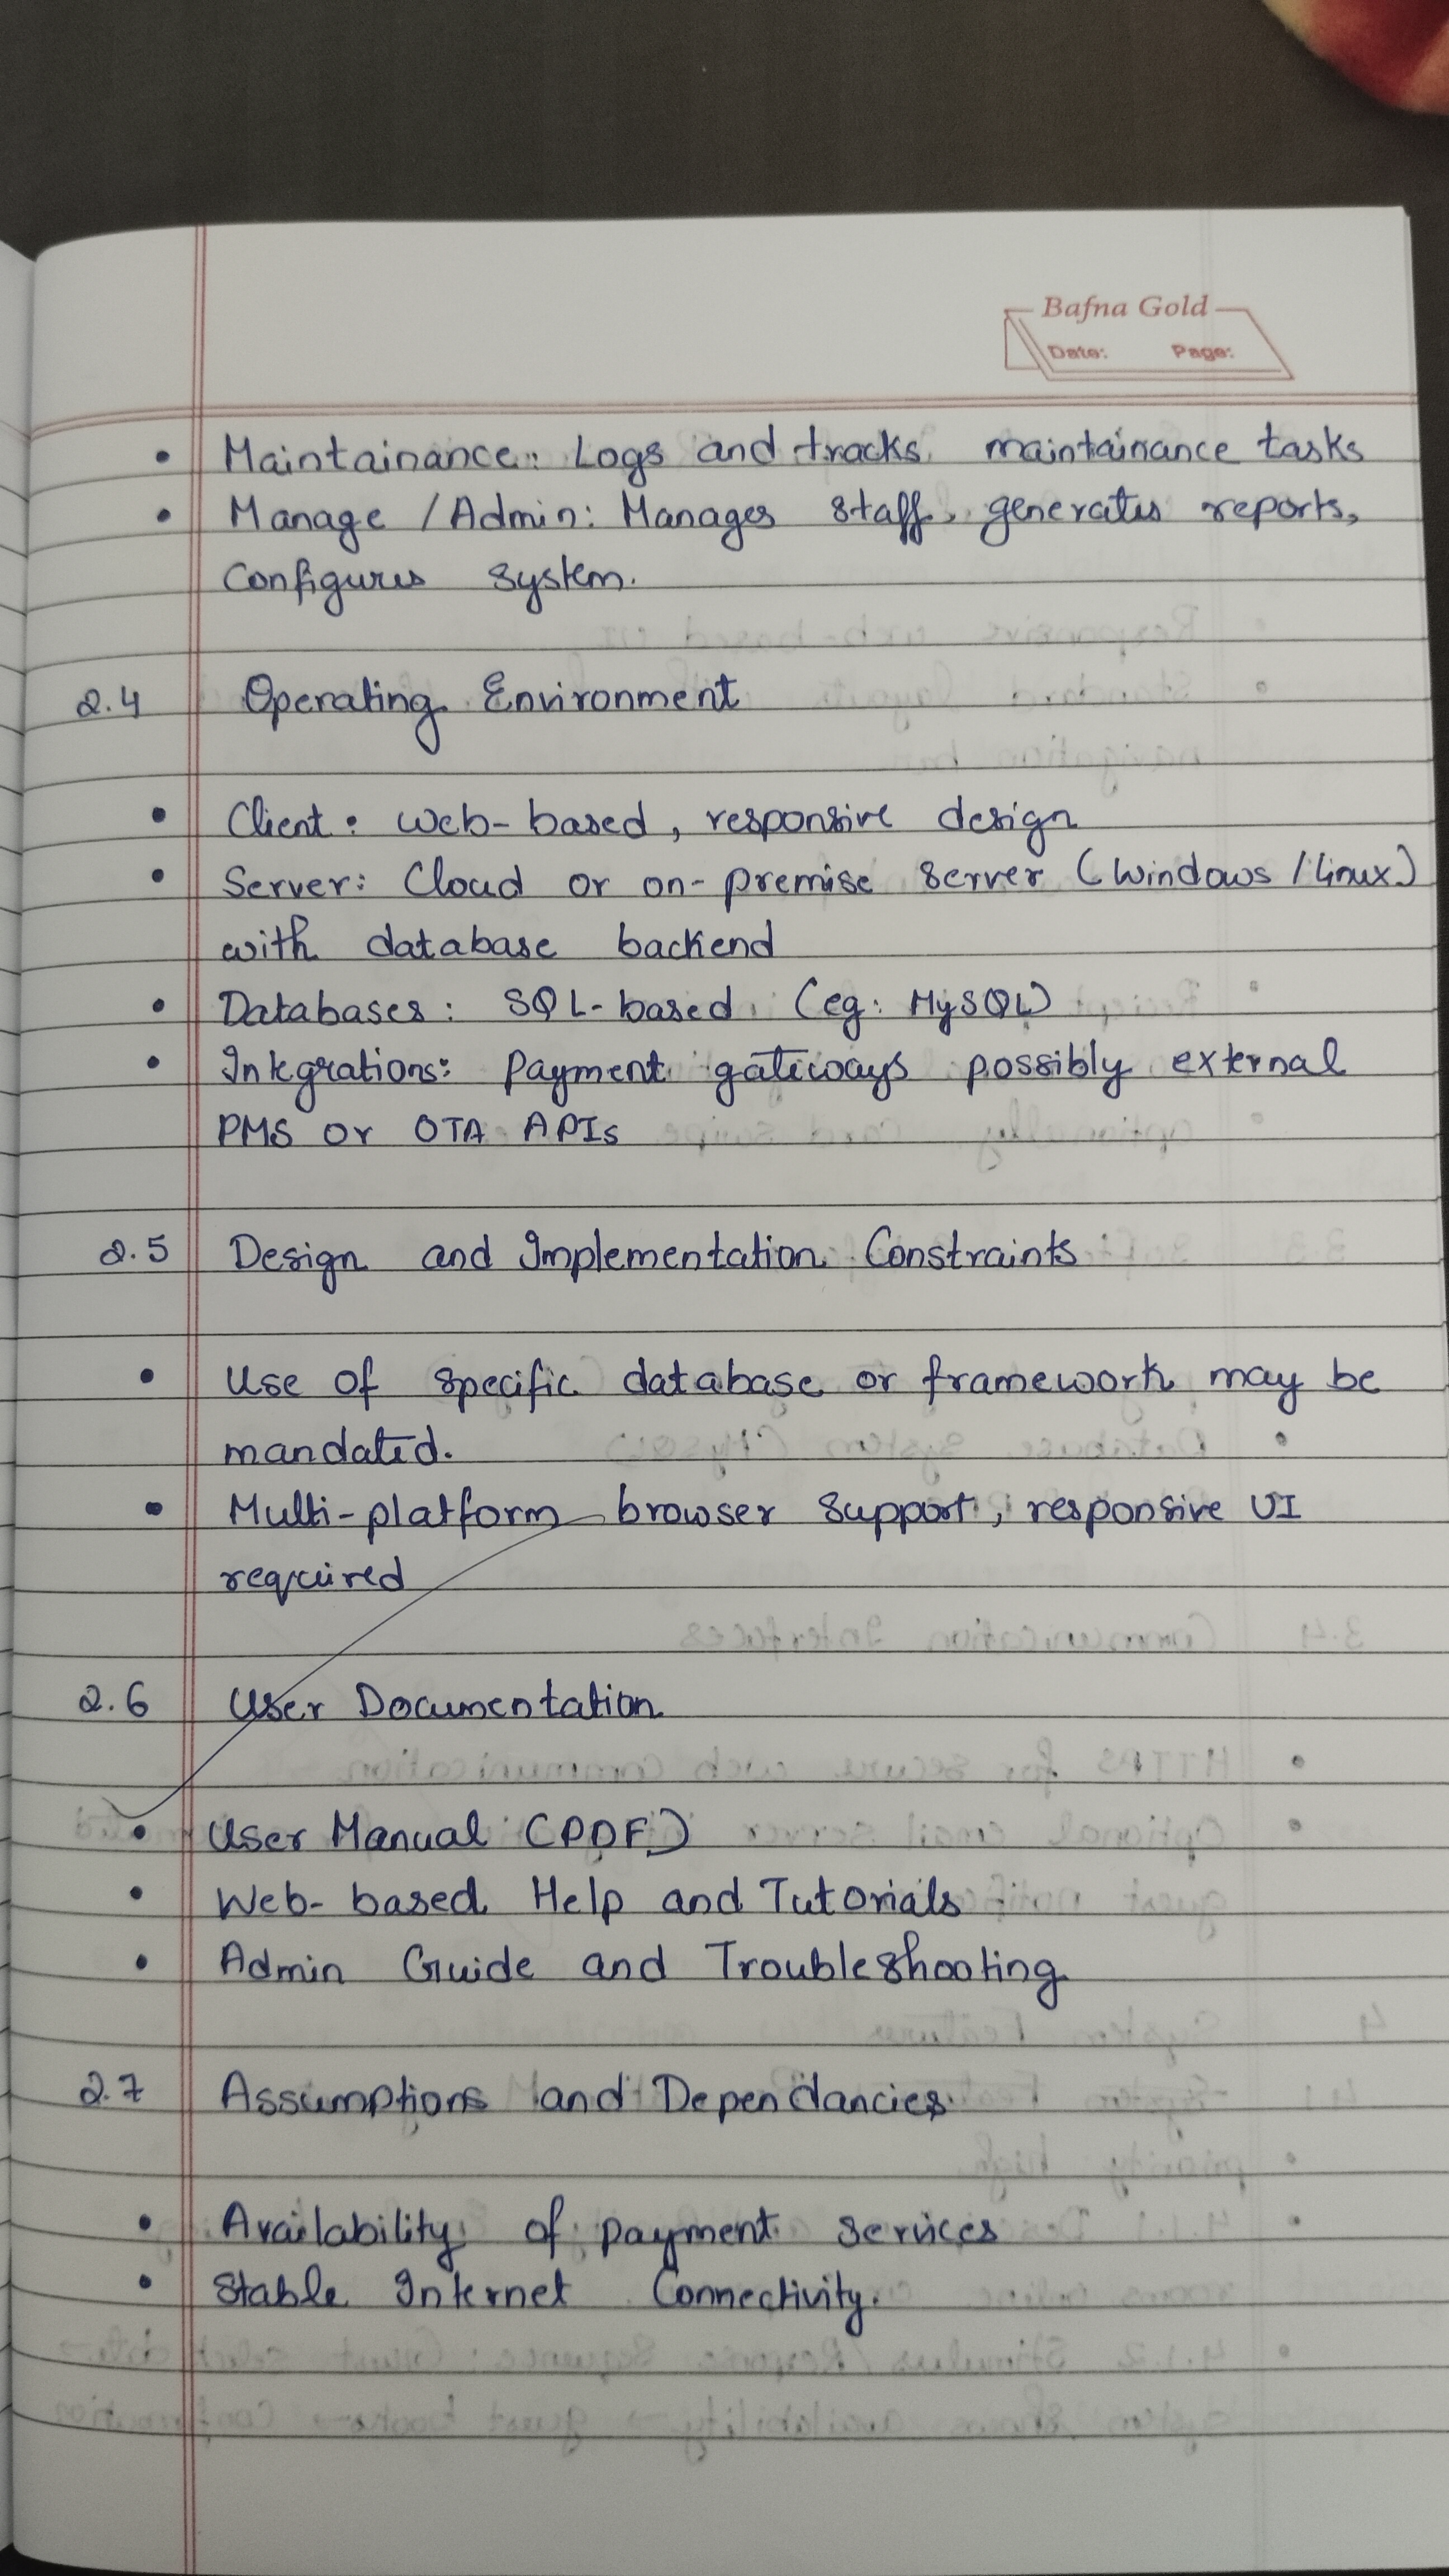 Bafna Gold
Date: Page:
• Maintainance: Logs and tracks maintainance tasks
• Manage / Admin: Manages staff, generates reports,
configures system.
2.4 Operating Environment
• Client: web-based, responsive design
• Server: Cloud or on-premise server (Windows / Linux)
with database backend
• Databases: SQL-based (eg: MySQL)
• Integrations: Payment gateways possibly external
PMS or OTA APIs
2.5 Design and Implementation Constraints
• Use of specific database or framework may be
mandated.
• Multi-platform browser support, responsive UI
required
2.6 User Documentation
• User Manual (PDF)
• Web-based Help and Tutorials
• Admin Guide and Troubleshooting
2.7 Assumptions and Dependancies
• Availability of payment services
• Stable Internet Connectivity.